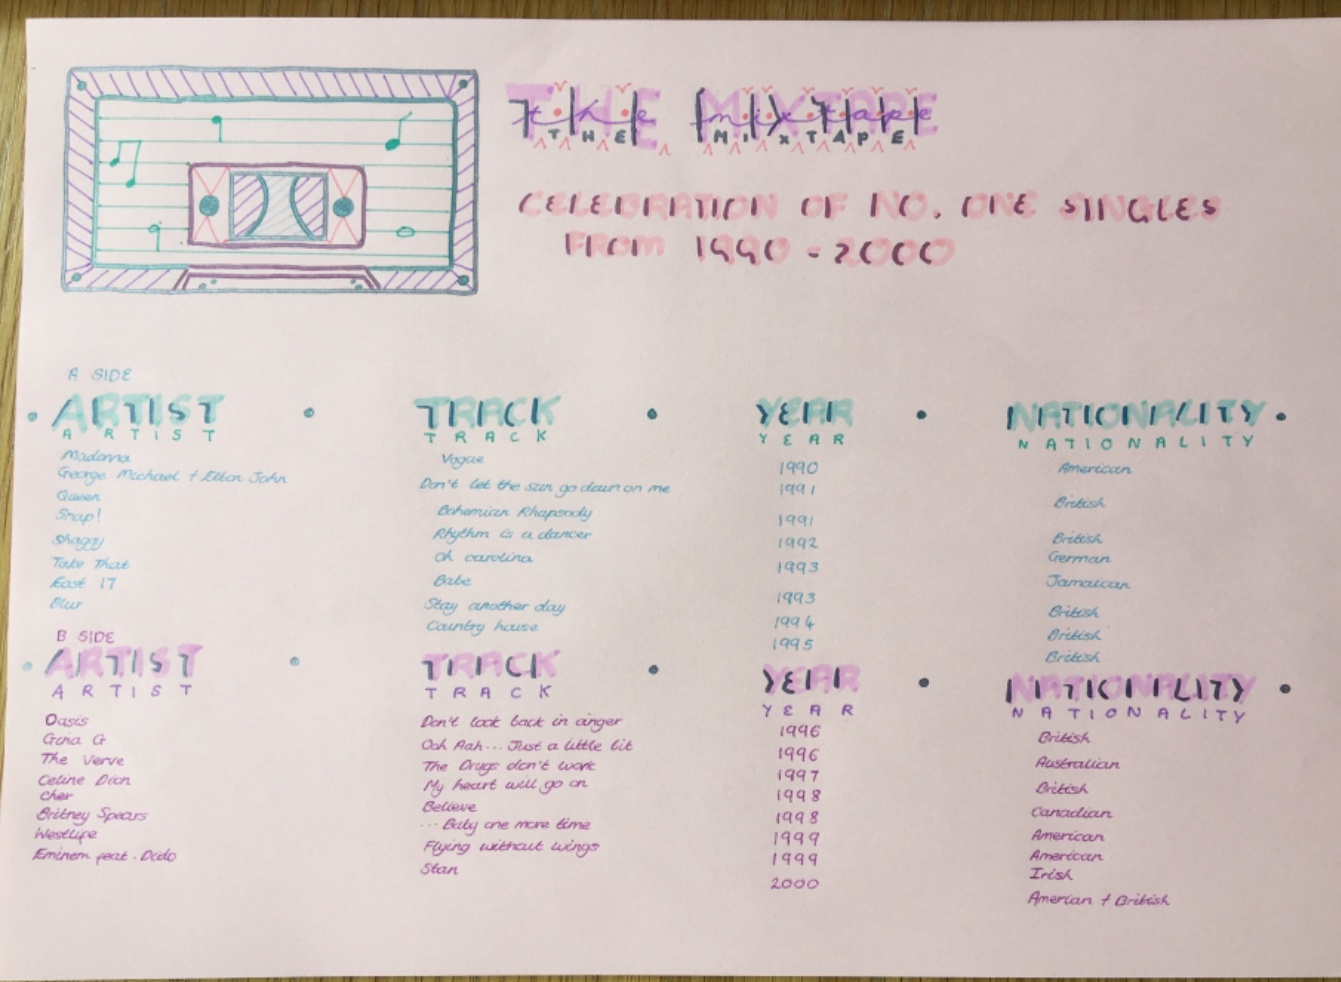 THE MIXTAPE
the mixtape
THE MIXTAPE
CELEBRATION OF NO. ONE SINGLES
FROM 1990 - 2000
A SIDE
ARTIST • TRACK • YEAR • NATIONALITY
ARTIST TRACK YEAR NATIONALITY
Madonna Vogue 1990 American
George Michael + Elton John Don't let the sun go down on me 1991 British
Queen Bohemian Rhapsody 1991 British
Snap! Rhythm is a dancer 1992 German
Shaggy Oh carolina 1993 Jamaican
Take That Babe 1993 British
East 17 Stay another day 1994 British
Blur Country house 1995 British
B SIDE
ARTIST • TRACK • YEAR • NATIONALITY
ARTIST TRACK YEAR NATIONALITY
Oasis Don't look back in anger 1996 British
Gina G Ooh Aah... Just a little bit 1996 Australian
The Verve The Drugs don't work 1997 British
Celine Dion My heart will go on 1998 Canadian
Cher Believe 1998 American
Britney Spears ...Baby one more time 1999 American
Westlife Flying without wings 1999 Irish
Eminem feat. Dido Stan 2000 Amercan + British